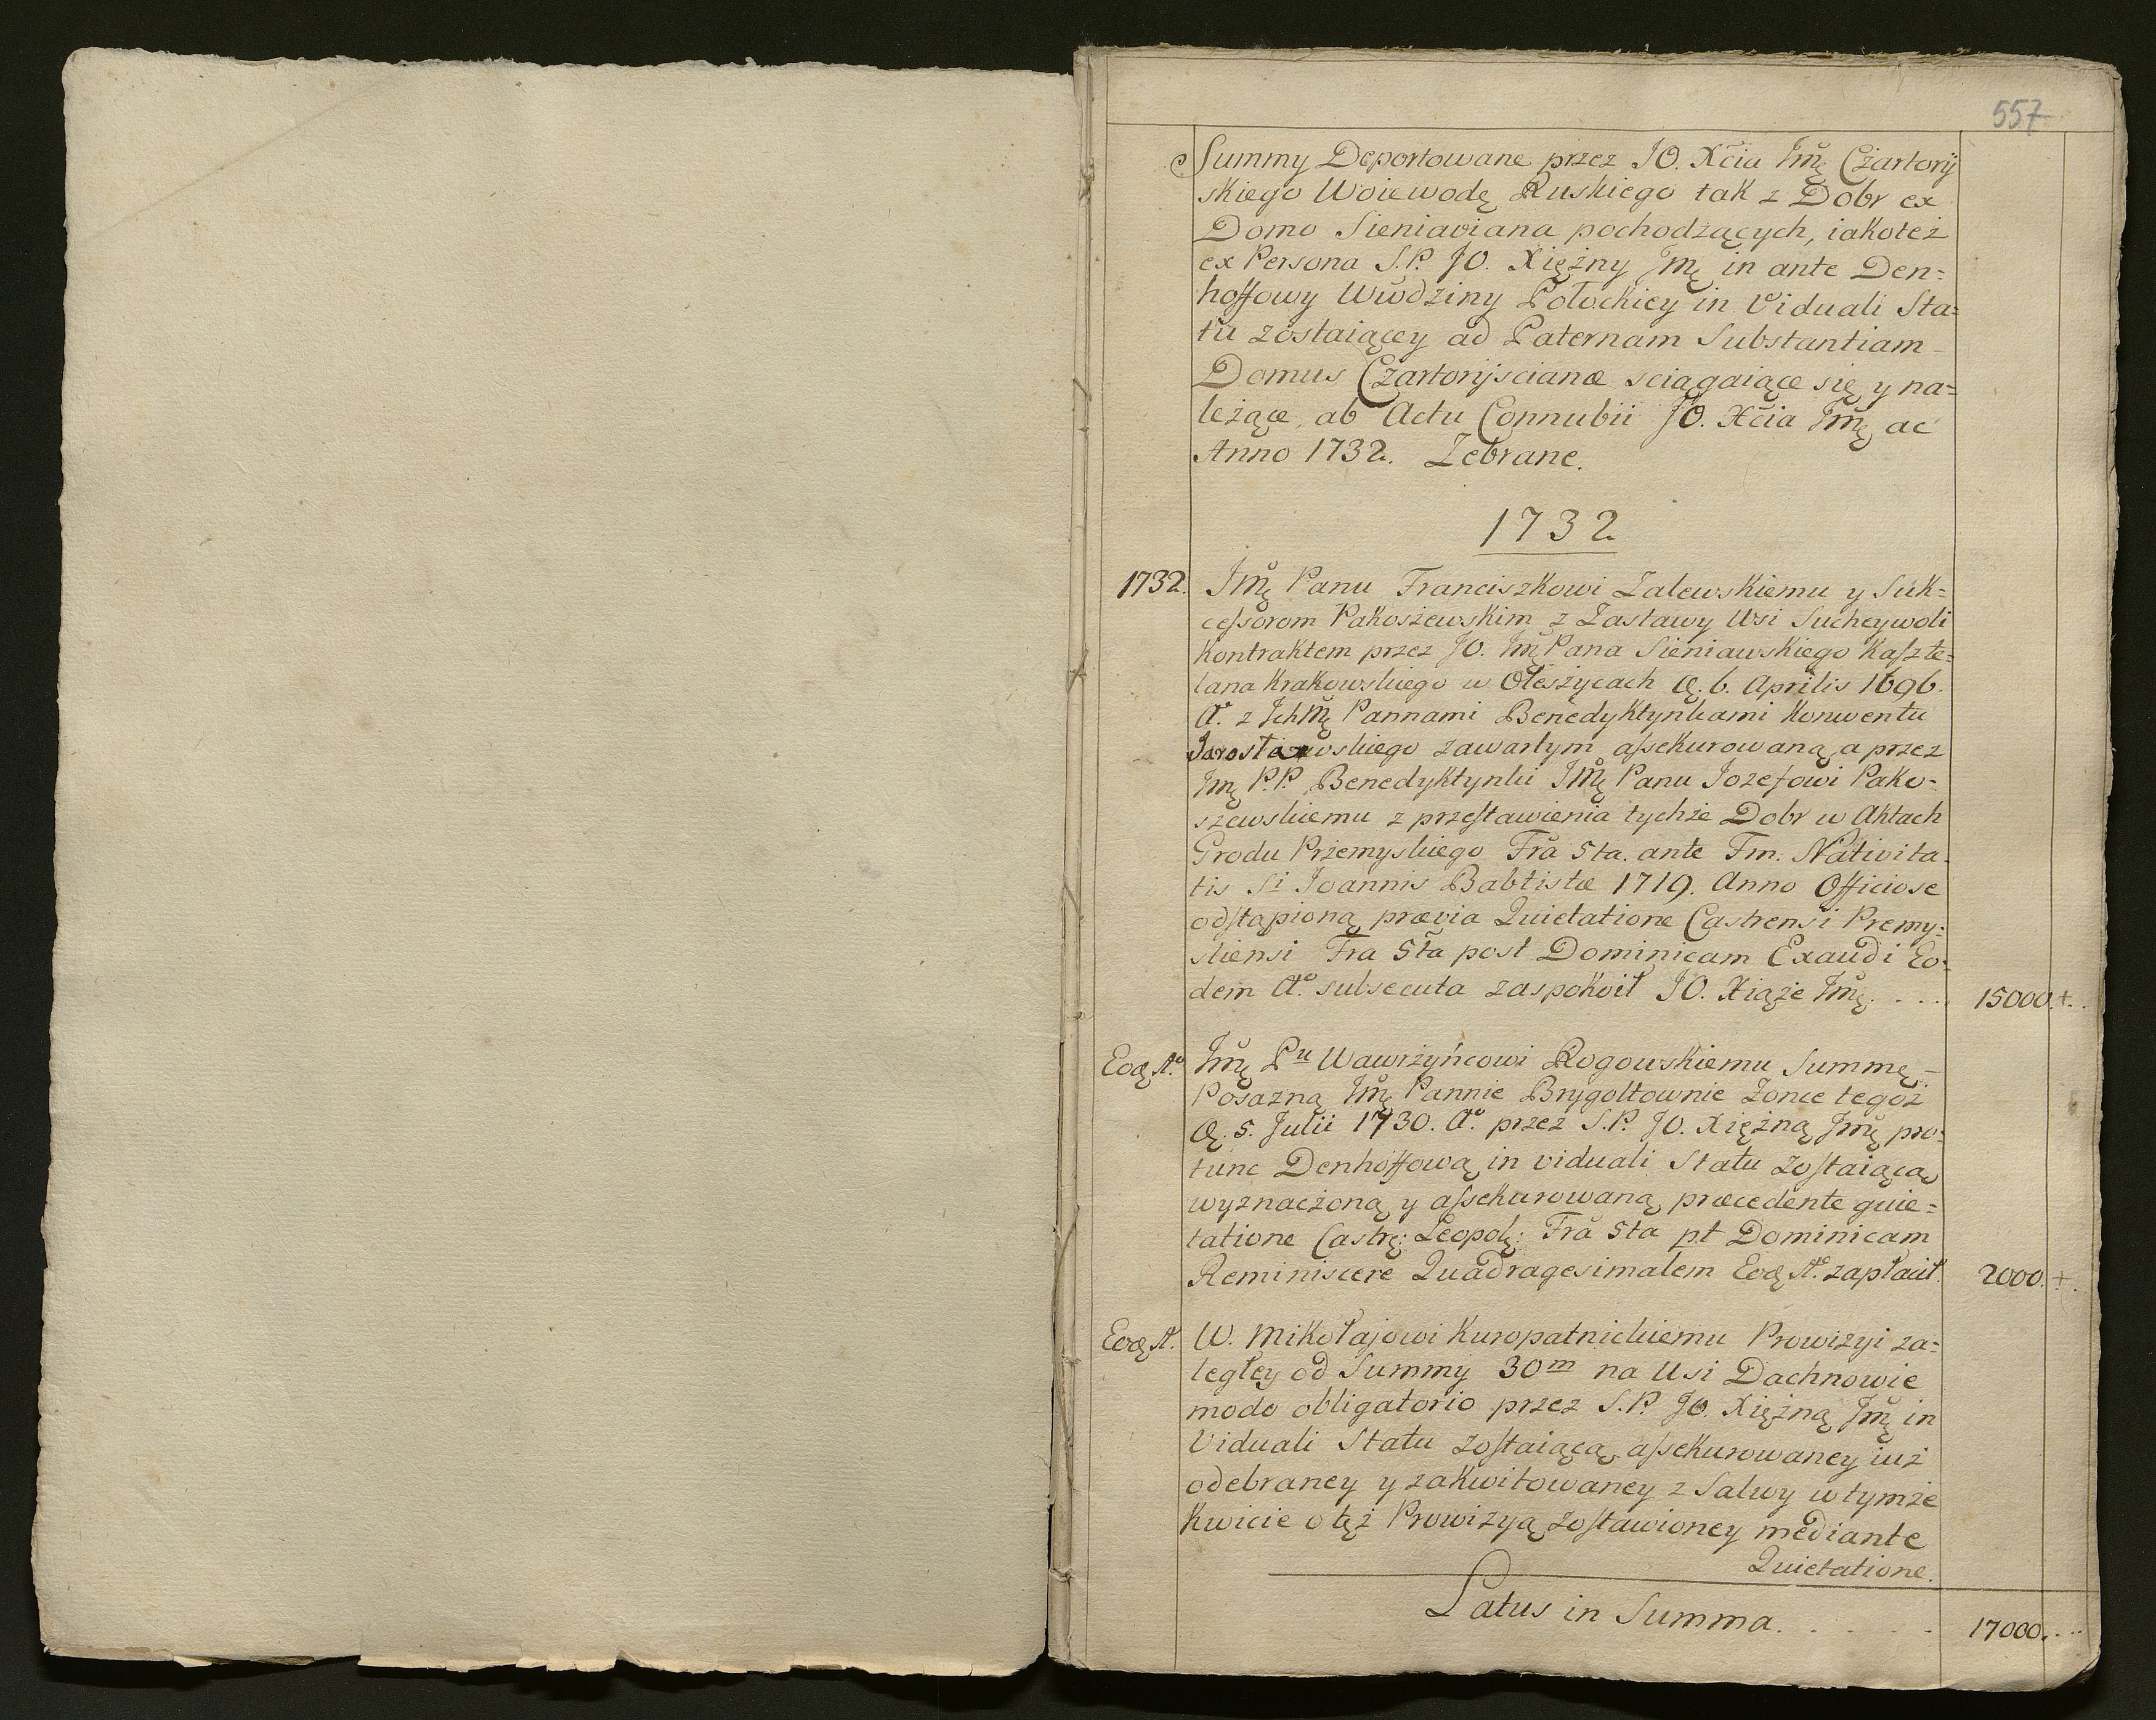 557
Summy Deportowane przez JO. Xcia Jmę Czartory
skiego Woiewodę Ruskiego tak z Dobr ex
Domo Sieniaviana pochodzących, iakoteż
ex Persona S.P. JO. Xiężny Jmę in ante Den=
hoffowy Wwdziny Połockiey in Viduali Sta=
tu zostaiącey ad Paternam Substantiam
Domus Czartoryscianæ sciągaiące się y na=
leżące, ab Actu Connubii JO. Xcia Jmę ac
Anno 1732. Zebrane.
1732
1732. Jmę Panu Franciszkowi Zalewskiemu y Suk=
cessorom Pakoszewskim z Zastawy Wsi Sucheywoli
Kontraktem przez JO. Jmę Pana Sieniawskiego Kaszte=
lana Krakowskiego w Oleszycach d. 6. Aprilis 1696.
Ao. z Jchmę Pannami Benedyktynkami Konwentu
Jarosławskiego zawartym assekurowaną, a przez
Jmę P.P. Benedyktynki Jmę Panu Jozefowi Pako=
szewskiemu z przestawienia tychże Dobr w Aktach
Grodu Przemyskiego Fra 5ta. ante Fm. Nativita=
tis Si Joannis Babtistæ 1719. Anno Officiose
odstąpioną prævia Quietatione Castrensi Premy=
sliensi Fra 5ta post Dominicam Exaudi Eo=
dem Ao. subsecuta zaspokoił JO. Xiąże Jmę. . . . 15000.+.
Eod. Ao. Jmę Pu Wawrzyńcowi Rogowskiemu Summę
Posazną Jmę Pannie Brygoltownie Zonie tegoż
d. 5. Julii 1730. Ao. przez S.P. JO. Xiężną Jmę pro=
tunc Denhoffową in viduali Statu zostaiącą
wyznaczoną y assekurowaną præcedente quie=
tatione Castr: Leopol: Fra 5ta pt Dominicam
Reminiscere Quadragesimalem Eod. Ao. zapłacił. 2000.+.
Eod. A. W. Mikołajowi Kuropatnickiemu Prowizyi za=
ległey od Summy 30m na Wsi Dachnowie
modo obligatorio przez S.P. JO. Xiężną Jmę in
Viduali Statu zostaiącą, assekurowaney iuż
odebraney y zakwitowaney z Salwy w tymże
Kwicie o też Prowizyą zostawioney mediante
Quietatione.
Latus in Summa. . . . . . 17000. . .